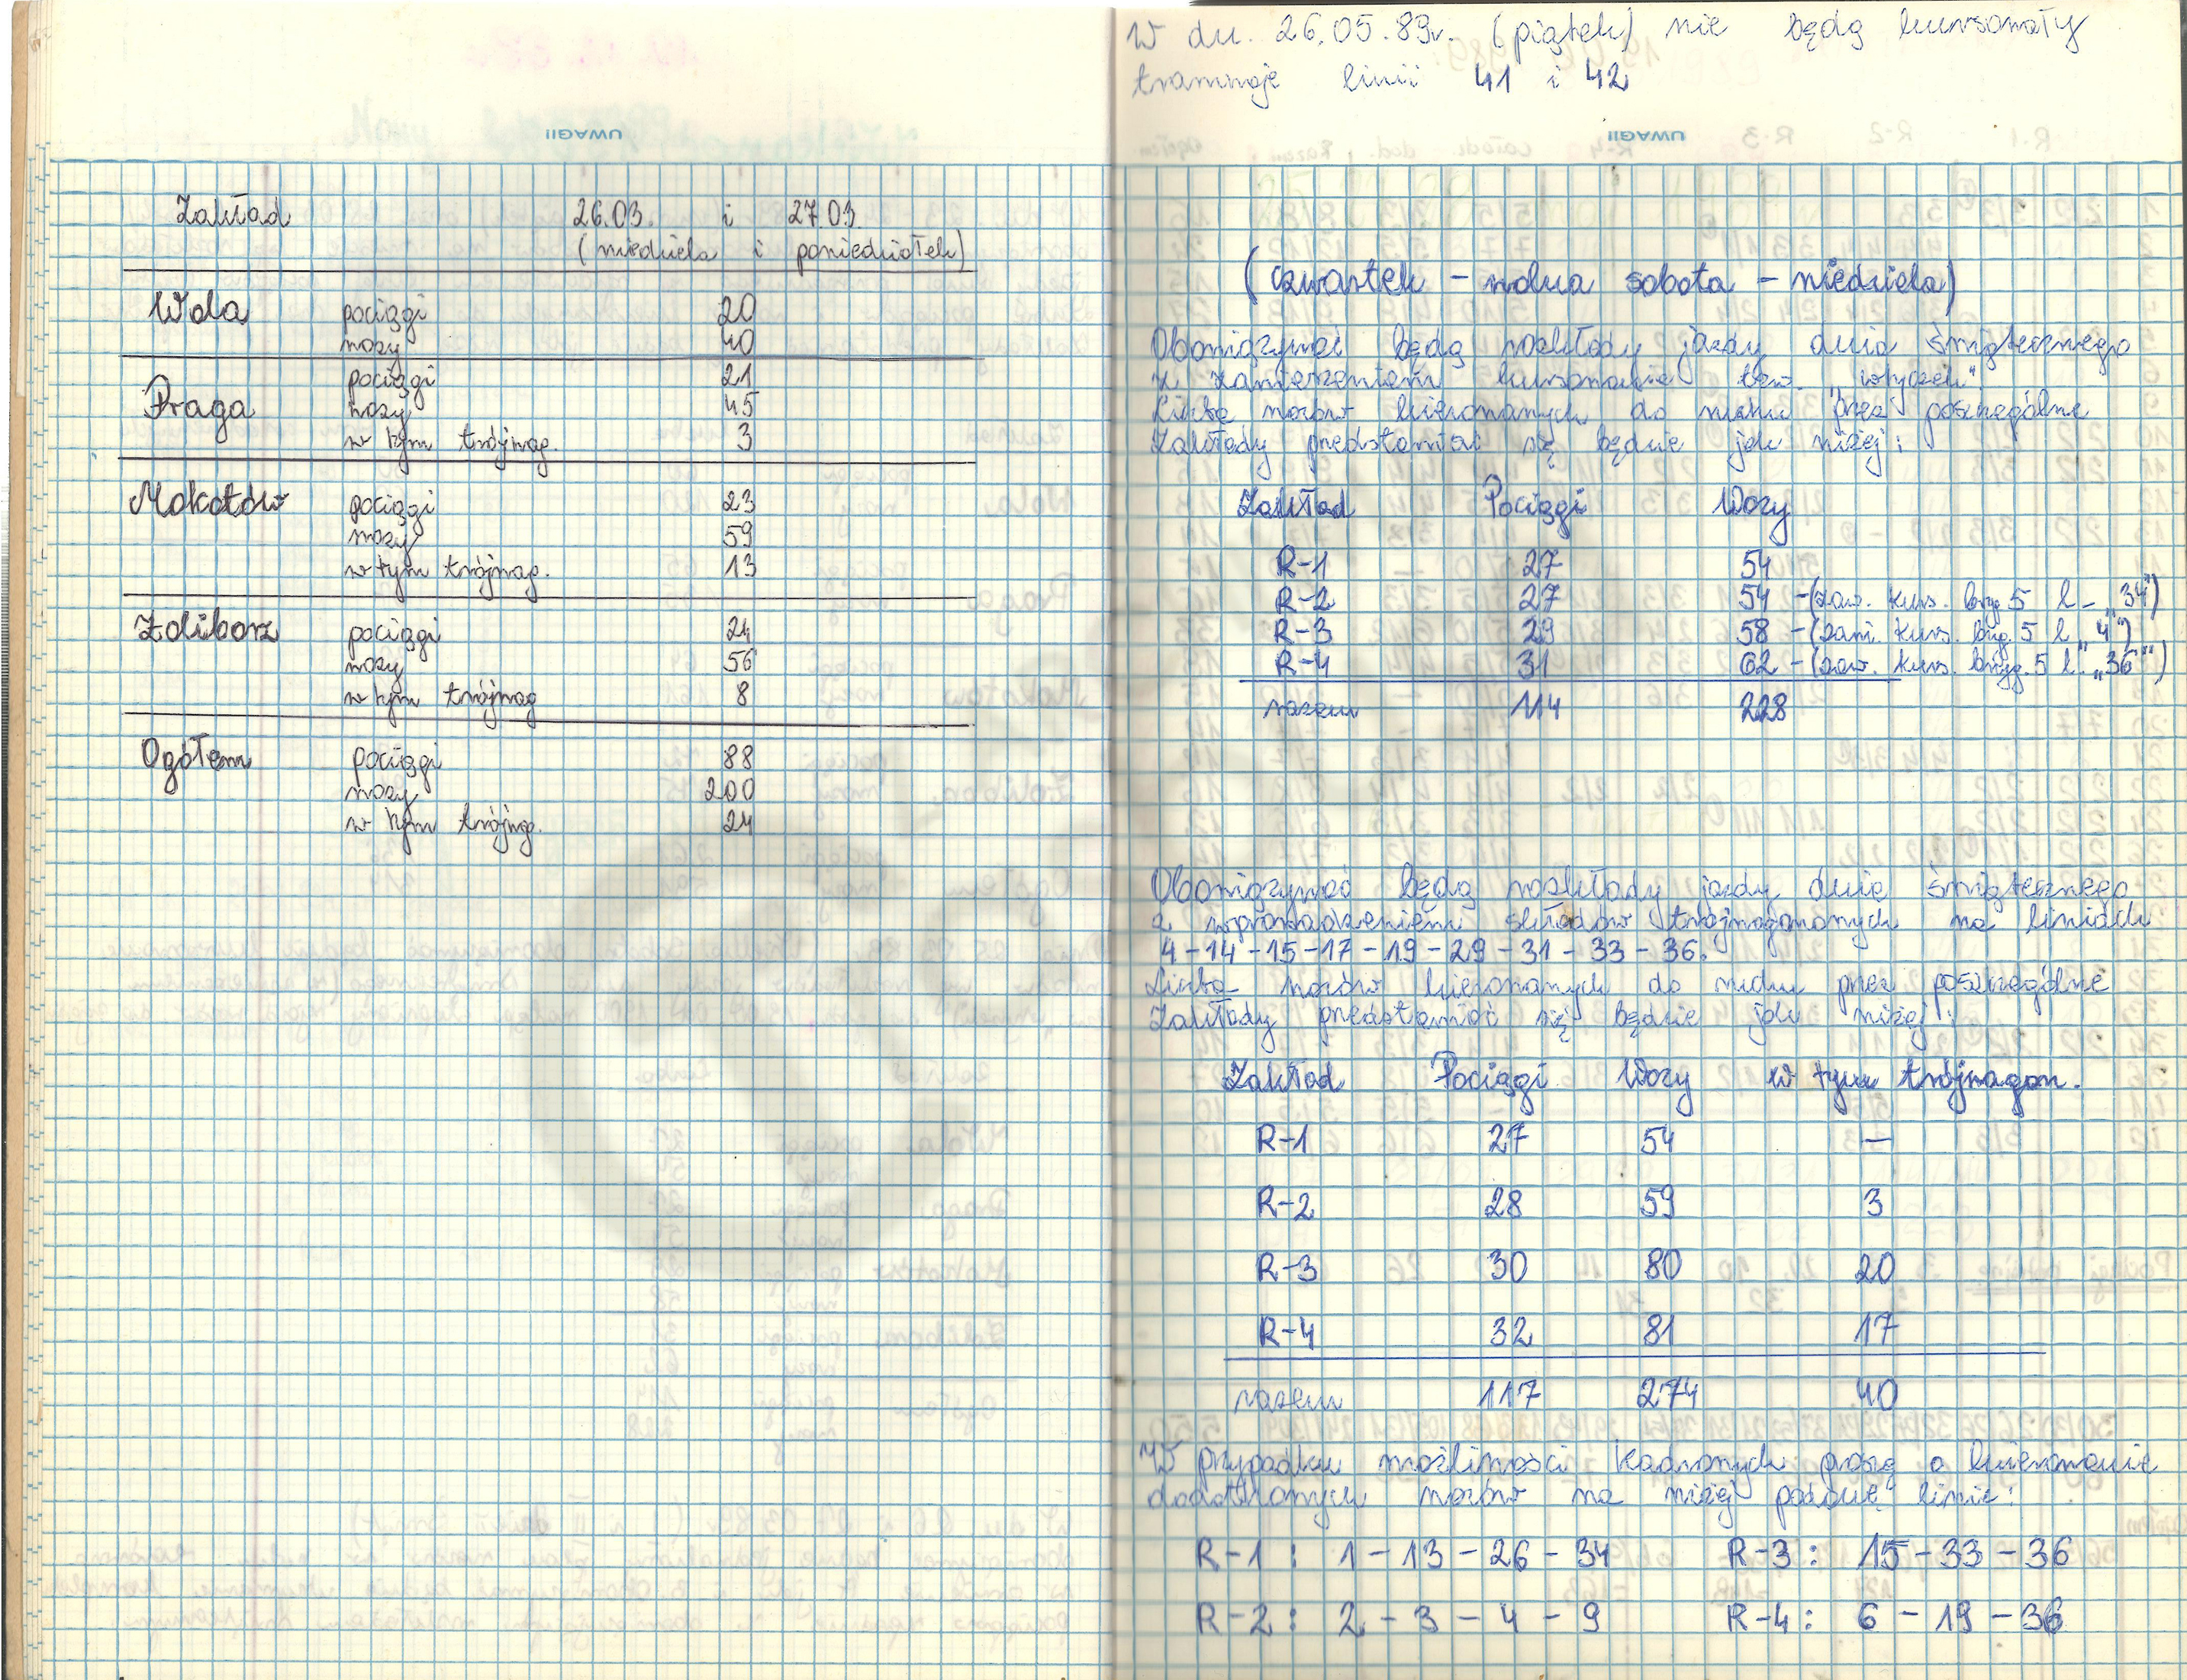 UWAGI!
Zakład 26.03. i 27.03.
(niedziela i poniedziałek)
Wola pociągi 20
wozy 40
Praga pociągi 21
wozy 45
w tym trójwag. 3
Mokotów pociągi 23
wozy 59
w tym trójwag. 13
Żoliborz pociągi 24
wozy 56
w tym trójwag 8
Ogółem pociągi 88
wozy 200
w tym trójwag. 24
W dn. 26.05.89r. (piątek) nie będą kursowały
tramwaje linii 41 i 42
UWAGI!
(czwartek - wolna sobota - niedziela)
Obowiązywać będą rozkłady jazdy dnia świątecznego
z zawieszeniem kursowanie tzw. "wtyczek"
Liczba wozów kierowanych do ruchu przez poszczególne
Zakłady przedstawiać się będzie jak niżej:
Zakład Pociągi Wozy
R-1 27 54
R-2 27 54 - (zaw. kurs. bryg 5 l - „34")
R-3 29 58 - (zawi. kurs. bryg. 5 l „4")
R-4 31 62 - (zaw. kurs. bryg. 5 l. „36")
razem 114 228
Obowiązywać będą rozkłady jazdy dnia świątecznego
z wprowadzeniem składów trójwagonowych na liniach
4-14-15-17-19-29-31-33-36.
Liczba wozów kierowanych do ruchu przez poszczególne
Zakłady przedstawiać się będzie jak niżej:
Zakład Pociągi Wozy w tym trójwagon.
R-1 27 54 —
R-2 28 59 3
R-3 30 80 20
R-4 32 81 17
razem 117 274 40
W przypadku możliwości kadrowych proszę o kierowanie
dodatkowych wozów na niżej podane linie:
R-1: 1-13-26-34 R-3: 15-33-36
R-2: 2-3-4-9 R-4: 6-19-36